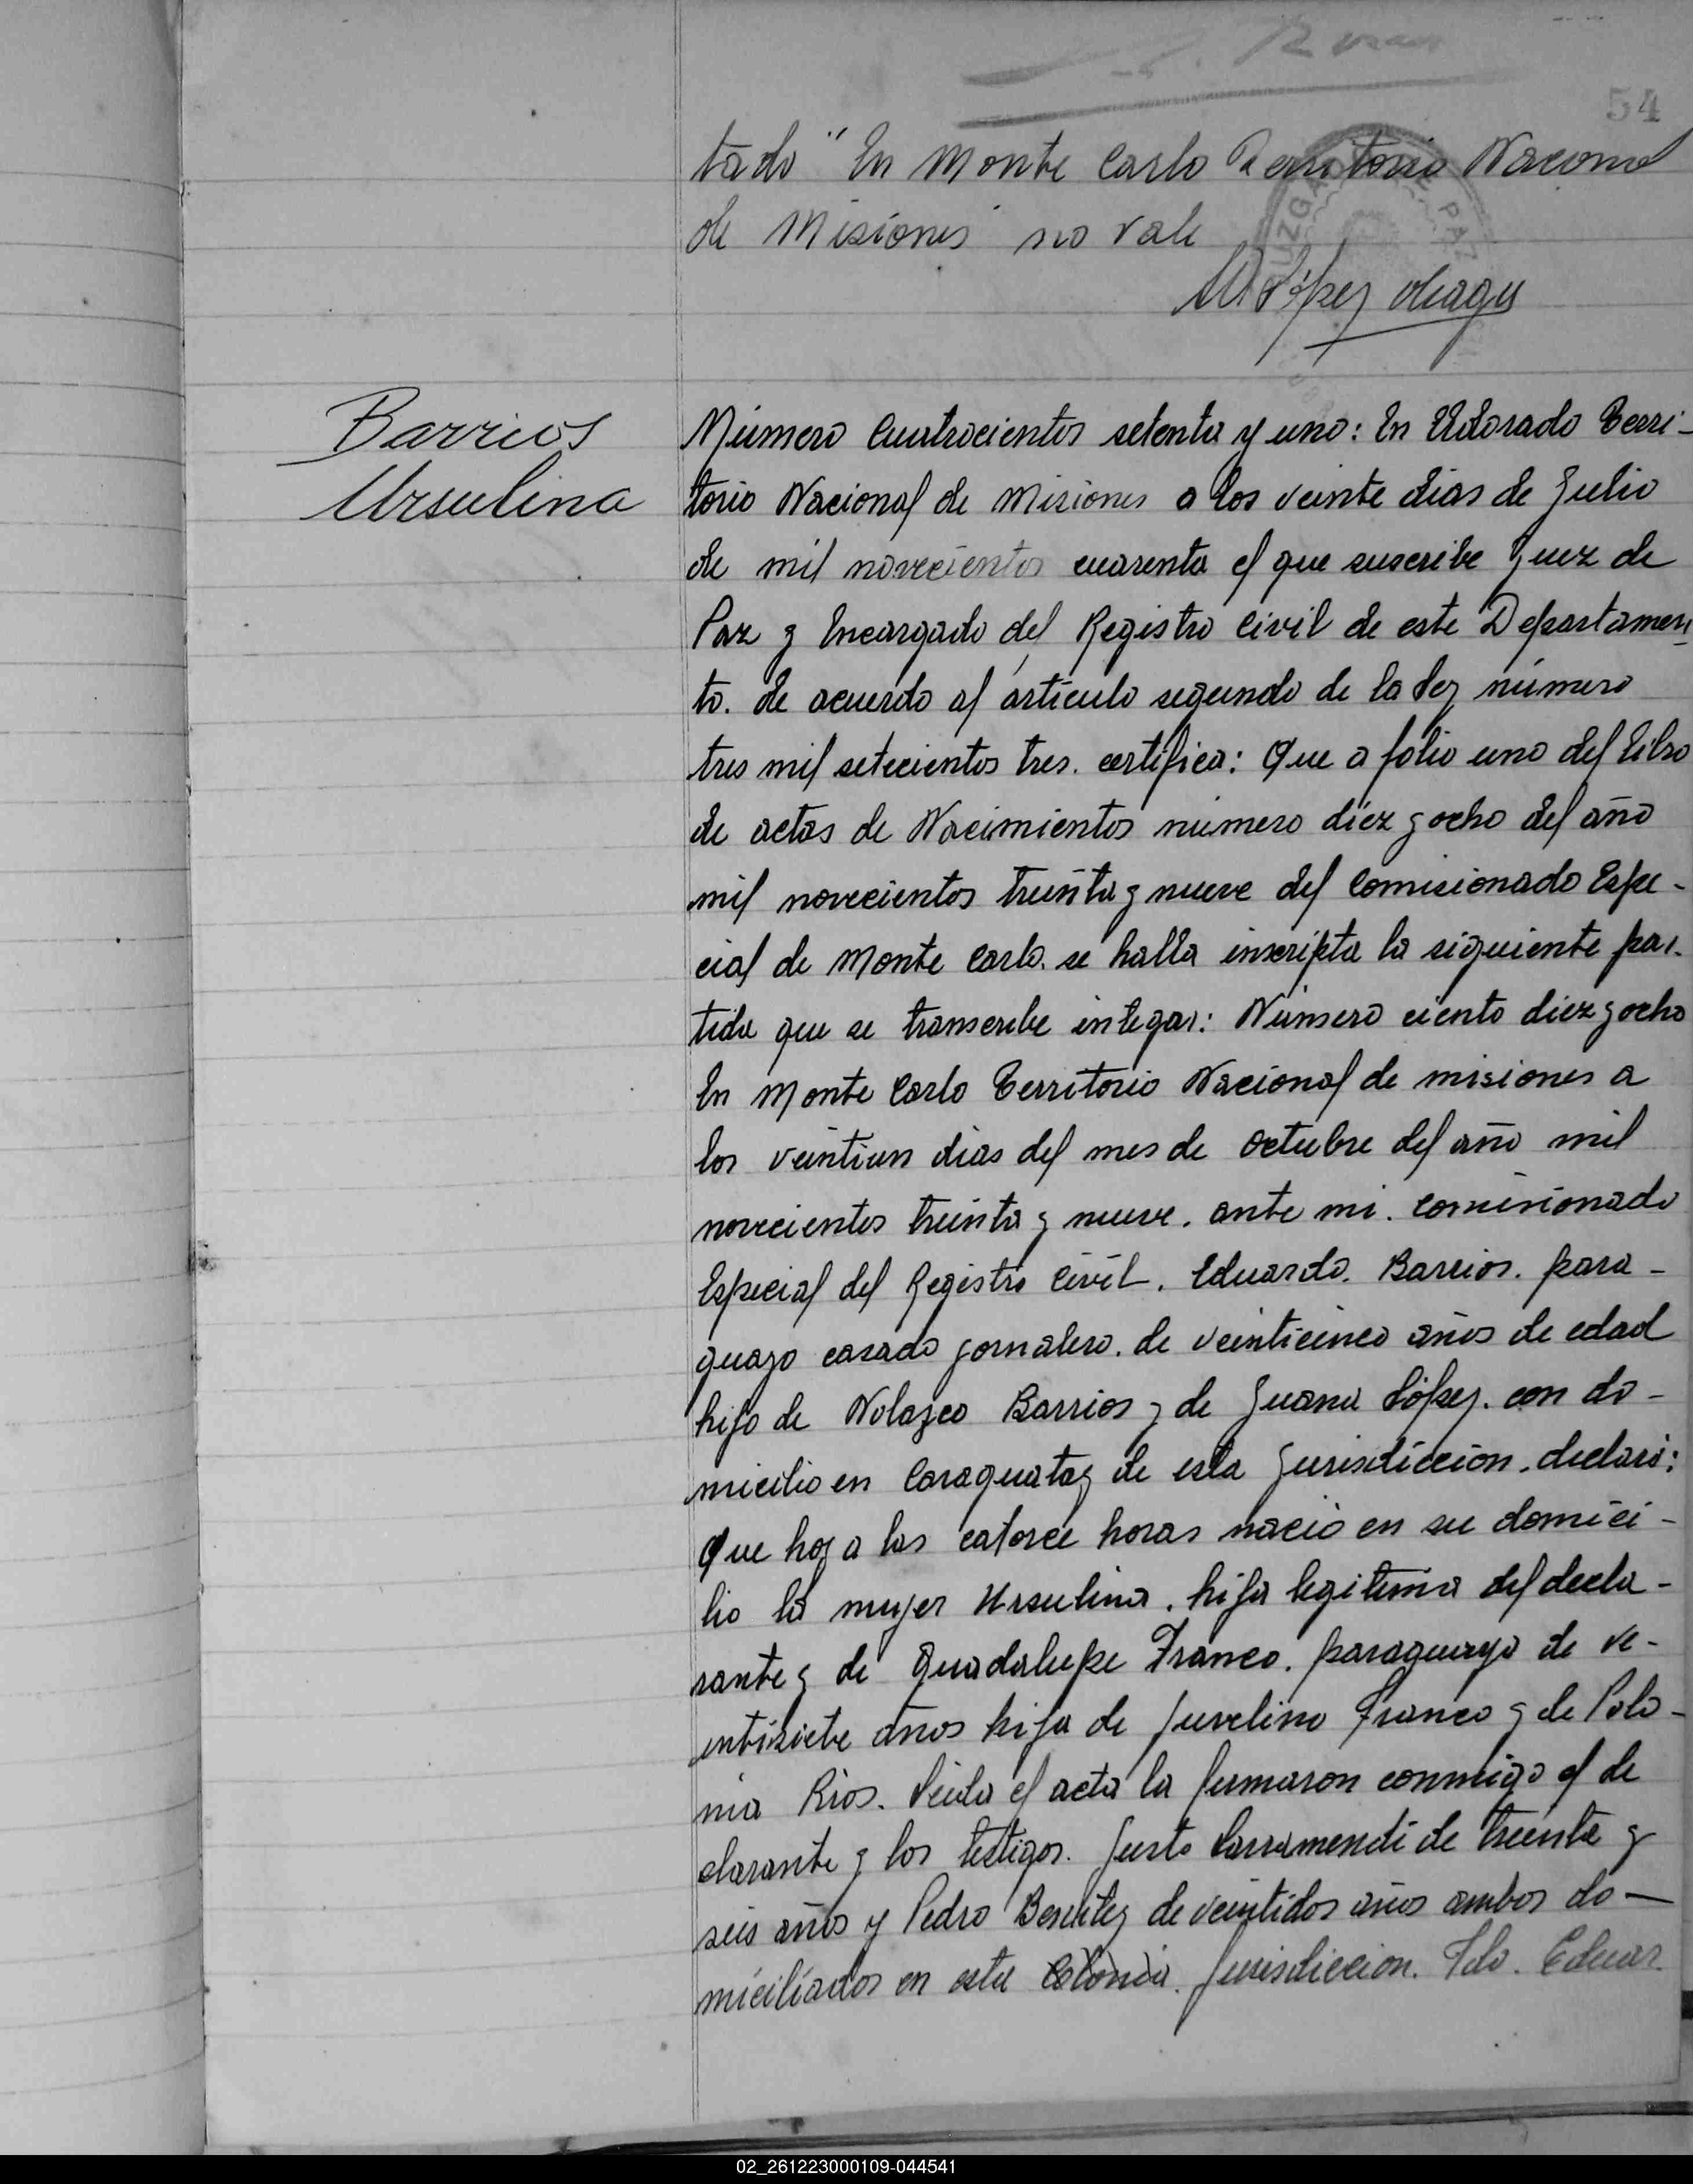 54
tado" En Monte Carlo Territorio Nacional
de Misiones no vale
JUZGADO DE PAZ
López
Barrios
Ursulina
Número Cuatrocientos setenta y uno: En Eldorado Terri-
torio Nacional de Misiones a los veinte dias de Julio
de mil novecientos cuarenta el que suscribe Juez de
Paz y Encargado del Registro Civil de este Departamen-
to. de acuerdo al artículo segundo de la ley número
tres mil setecientos tres. certifica: Que a folio uno del Libro
de actas de Nacimientos número diez y ocho del año
mil novecientos treinta y nueve del Comisionado Espe-
cial de Monte Carlo. se halla inscripta la siguiente par-
tida que se transcribe integar: Número ciento diez y ocho
En Monte Carlo Territorio Nacional de misiones a
los veintiun dias del mes de octubre del año mil
novecientos treinta y nueve. ante mi. comisionado
Especial del Registro Civil. Eduardo. Barrios. para-
guayo casado jornalero. de veinticinco años de edad
hijo de Nolazco Barrios y de Juana López. con do-
micilio en Caraguatay de esta Jurisdiccion. declaró:
Que hoy a las catorce horas nació en su domici-
lio la mujer Ursulina. hija legitima del decla-
rante y de Guadalupe Franco. paraguaya de ve-
intisiete años hija de Juvelino Franco y de Polo-
nia Rios. Leida el acta la firmaron conmigo el de
clarante y los testigos. Justo Larramendi de treinta y
seis años y Pedro Benitez de veintidos años ambos do-
miciliados en esta Colonia. Jurisdiccion. Fdo. Eduar
02_261223000109-044541